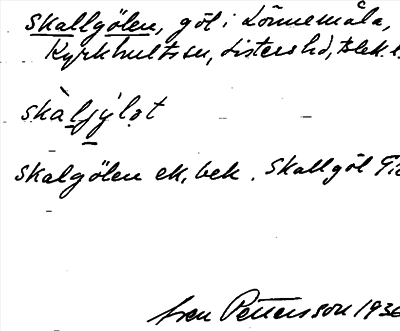 Skallgölen, göl i Lönnemåla,
Kyrkhultssn, Listers hd, Blek. l.
skàljy̆lǝt
Skalgölen ek, bek. Skallgöl
Iven Pettersson 1936